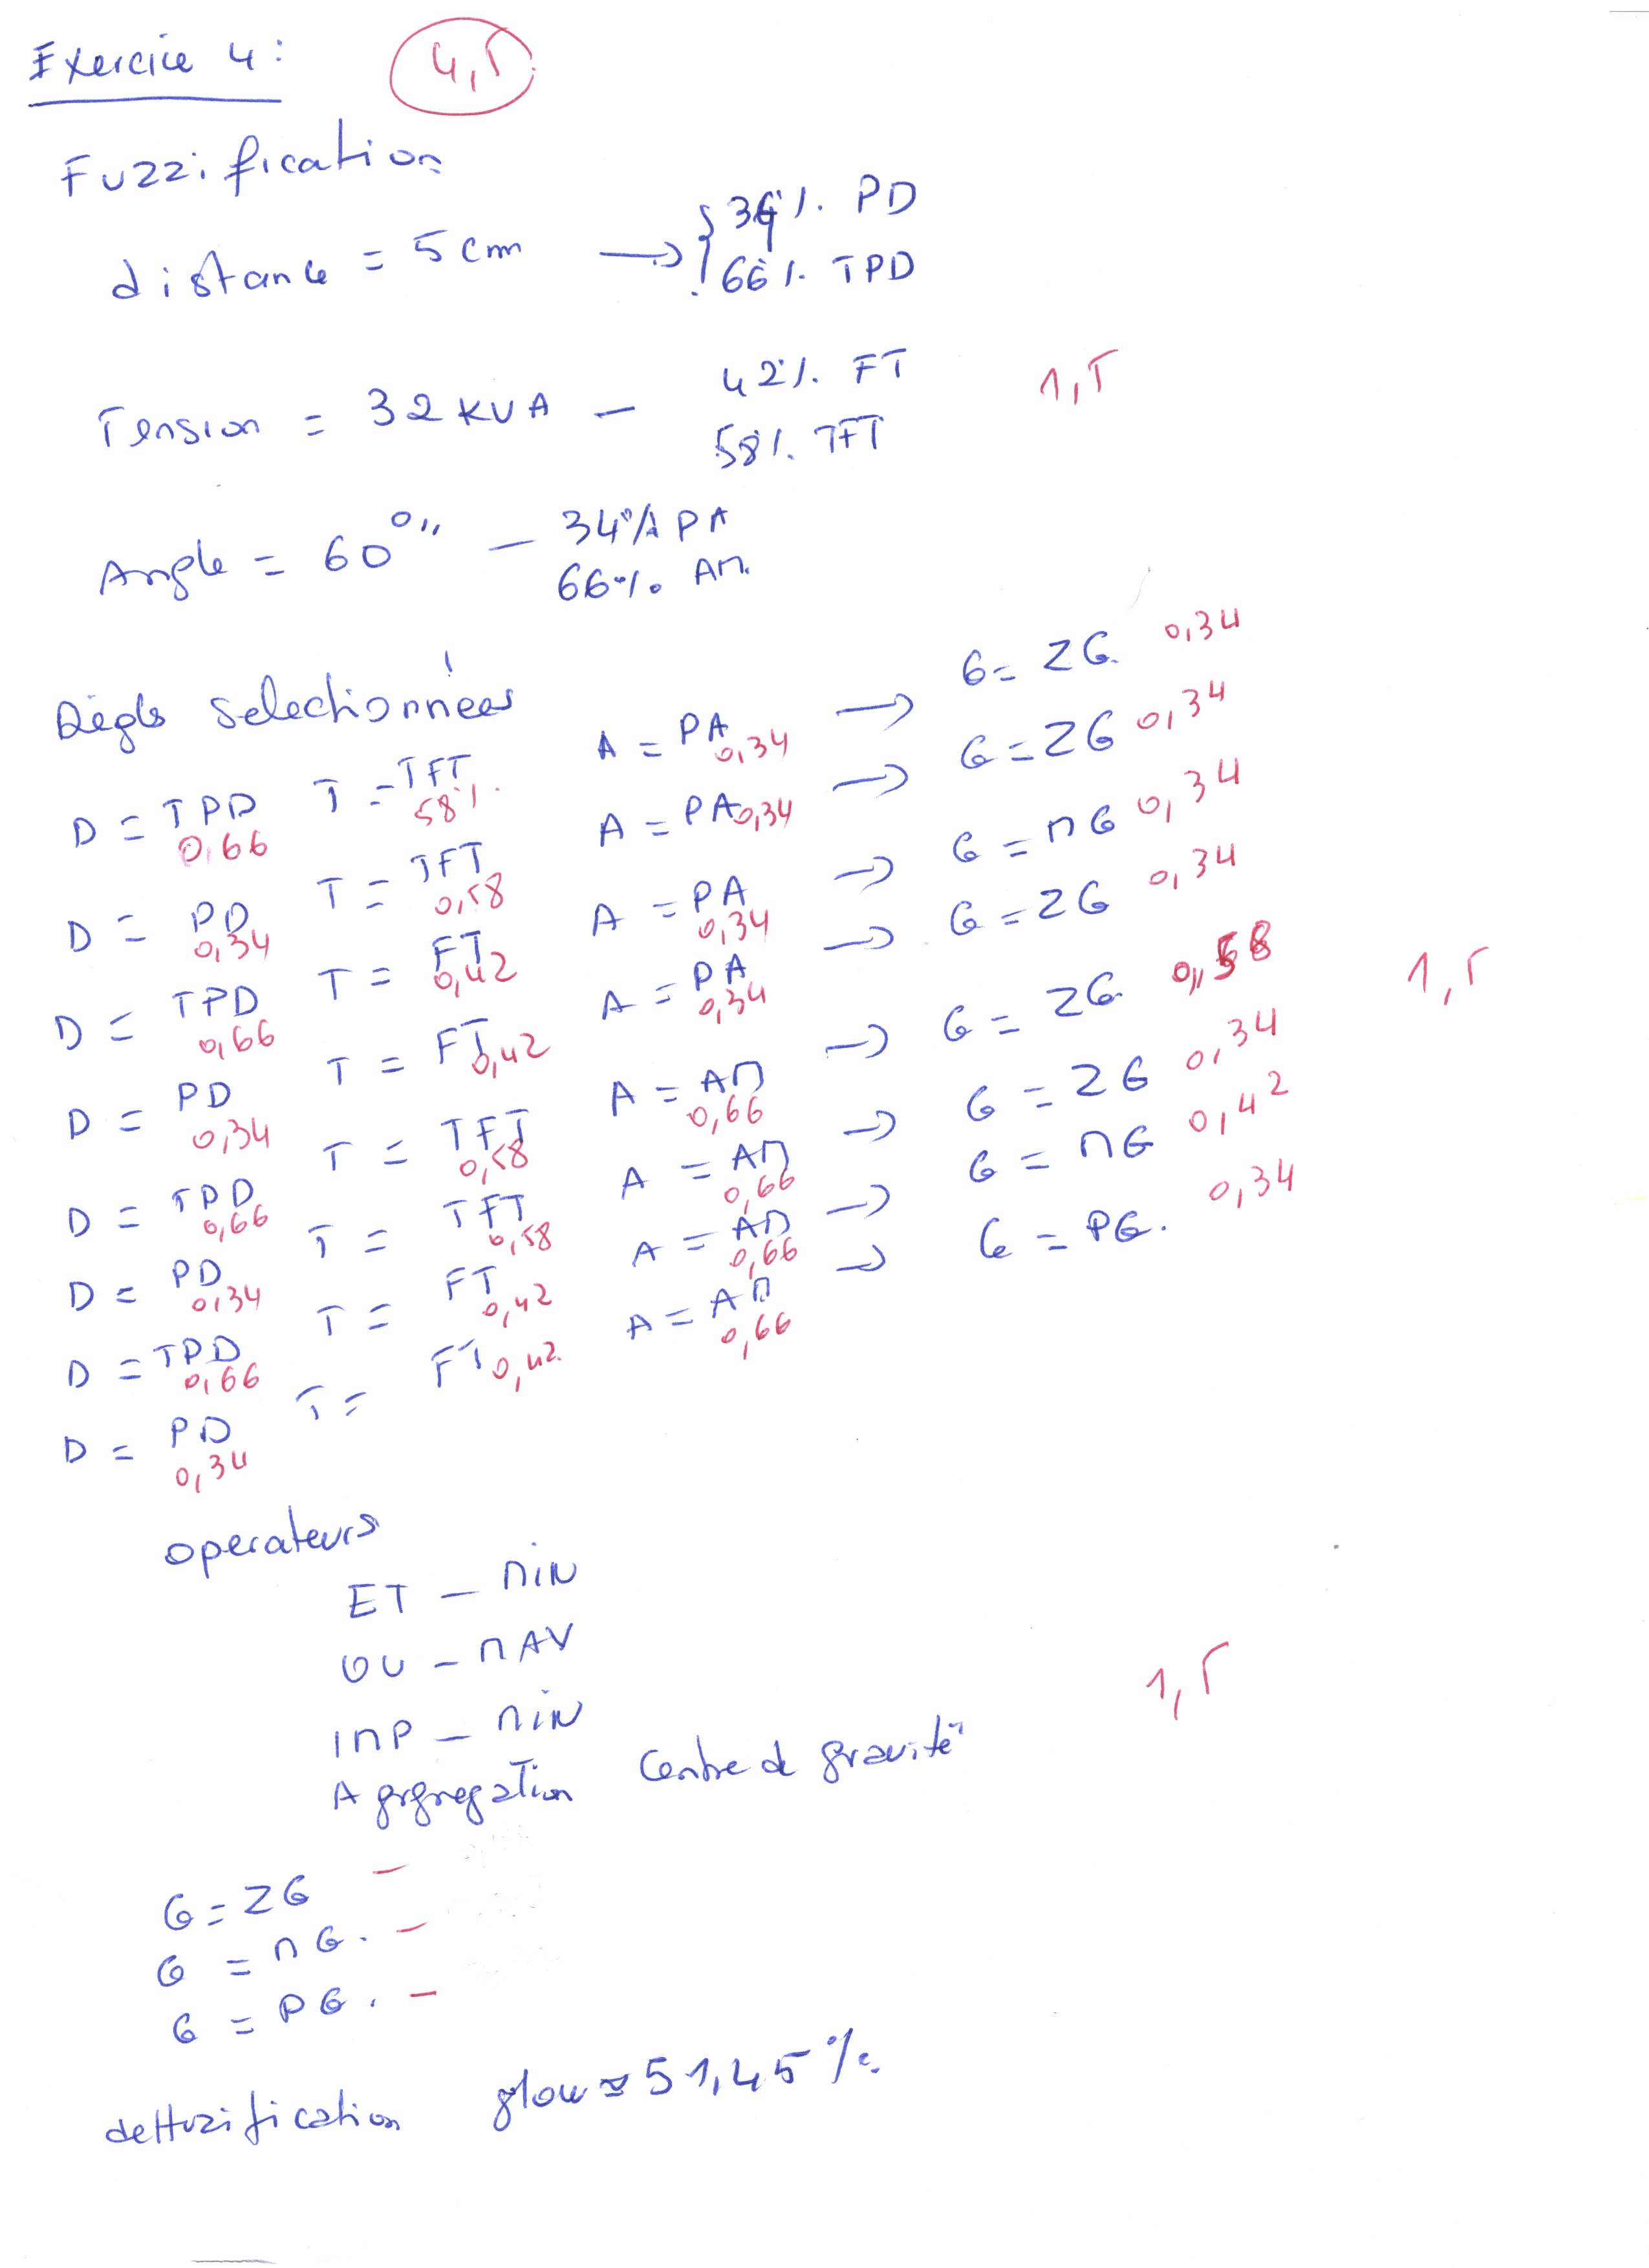 Exercice 4 : 4,5
Fuzzification
distance = 5 cm → { 34 % PD
66 % TPD
Tension = 32 KVA – 42 % FT
58 % TFT
1,5
Angle = 60° – 34 % PA
66 % AM
Règls selectionnées
D = TPD 0,66 T = TFT 58 % A = PA 0,34 → G = ZG 0,34
D = PD 0,34 T = TFT 0,58 A = PA 0,34 → G = ZG 0,34
D = TPD 0,66 T = FT 0,42 A = PA 0,34 → G = MG 0,34
D = PD 0,34 T = FT 0,42 A = PA 0,34 → G = ZG 0,34
D = TPD 0,66 T = TFT 0,58 A = AM 0,66 → G = ZG 0,58
1,5
D = PD 0,34 T = TFT 0,58 A = AM 0,66 → G = ZG 0,34
D = TPD 0,66 T = FT 0,42 A = AM 0,66 → G = MG 0,42
D = PD 0,34 T = FT 0,42 A = AM 0,66 → G = PG. 0,34
operateurs
ET – MIN
OU – MAV
IMP – MIN
1,5
Aggregation Centre de gravité
G = ZG –
G = MG. –
G = PG. –
deffuzification glow ≈ 51,45 %